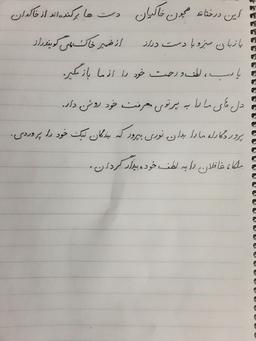 این درختان همچون خاکیان دست ها برکنده‌اند از خاکدان
با زبان سبز و با دست دراز از ضمیر خاک می گویند راز
یا رب، لطف و رحمت خود را از ما باز مگیر.
دل های ما را به پرتوی معرفت خود روشن دار.
پروردگارا، ما را بدان نوری بپرور که بندگان نیک خود را پروردی.
ملکا، غافلان را به لطف خود بیدار گردان.